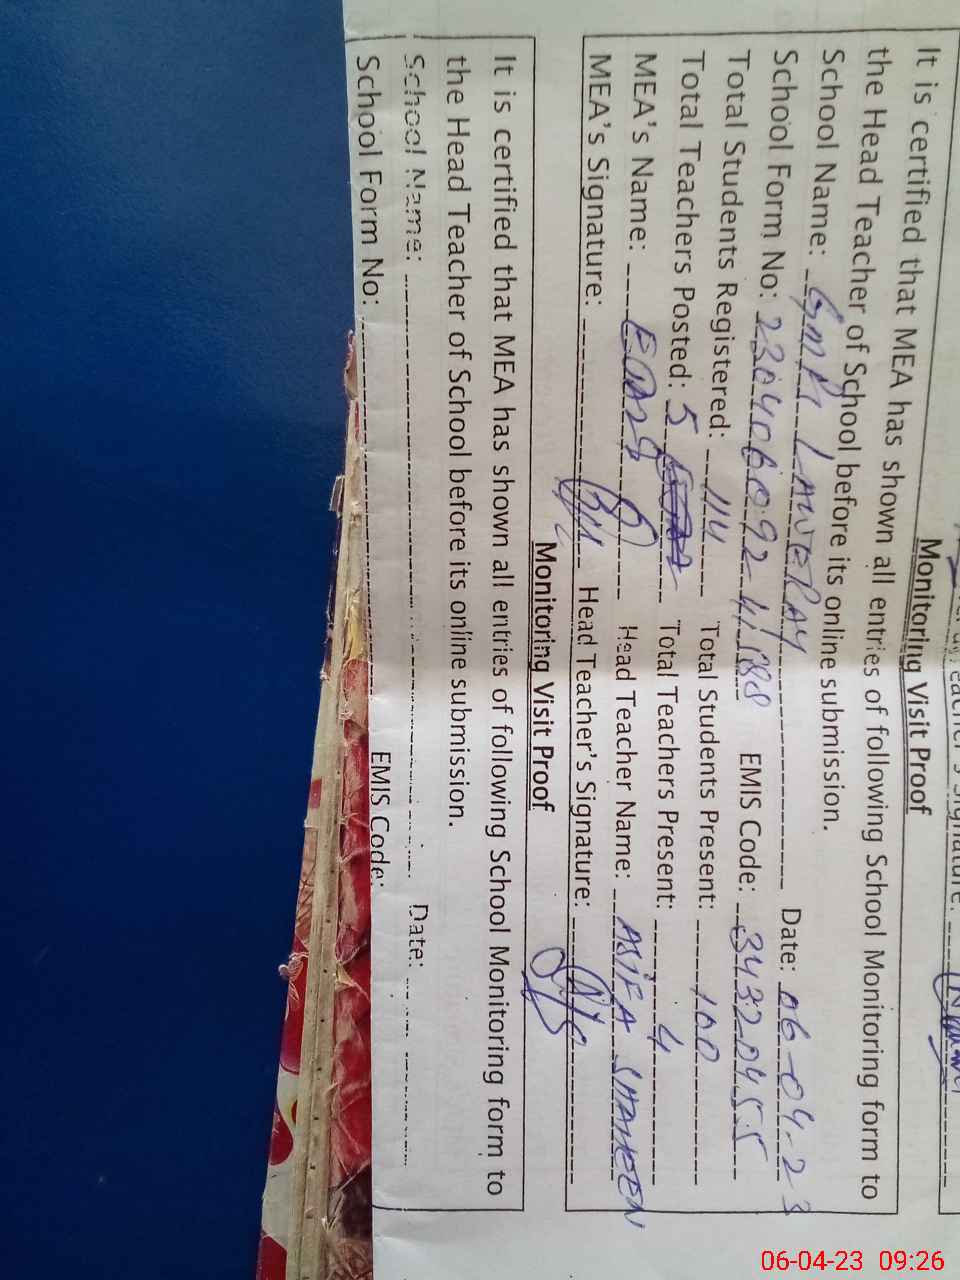 Monitoring Visit Proof
It is certified that MEA has shown all entries of following School Monitoring form to
the Head Teacher of School before its online submission.
School Name: LAWERAY Date: 06-04-23
School Form No: 230406092-4188 EMIS Code: 34320455
Total Students Registered: 114 Total Students Present: 100
Total Teachers Posted: 5 Total Teachers Present: 4
MEA's Name: Head Teacher Name: ASIFA SHAHEEN
MEA's Signature: Head Teacher's Signature:
Monitoring Visit Proof
It is certified that MEA has shown all entries of following School Monitoring form to
the Head Teacher of School before its online submission.
School Name: Date:
School Form No: EMIS Code:
06-04-23 09:26